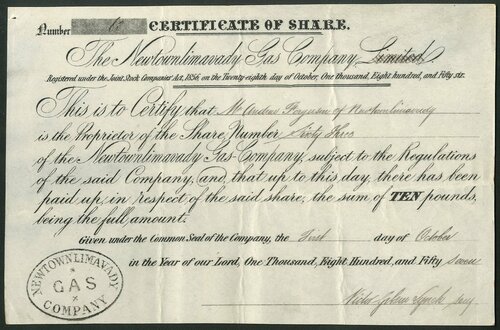 Number 6 CERTIFICATE OF SHARE.
The Newtownlimavady Gas Company Limited
Registered under the Joint Stock Companies Act, 1856, on the Twenty eighth day of October, One thousand, Eight hundred, and Fifty six.
This is to Certify that Mr Andrew Ferguson of Newtownlimavady
is the Proprietor of the Share, Number Sixty Three
of the Newtownlimavady Gas-Company, subject to the Regulations
of the said Company, and, that up to this day, there has been
paid up, in respect of the said share, the sum of TEN pounds,
being the full amount.
Given under the Common Seal of the Company, the First day of October
in the Year of our Lord, One Thousand, Eight Hundred, and Fifty Seven
NEWTOWNLIMAVADY
GAS
COMPANY